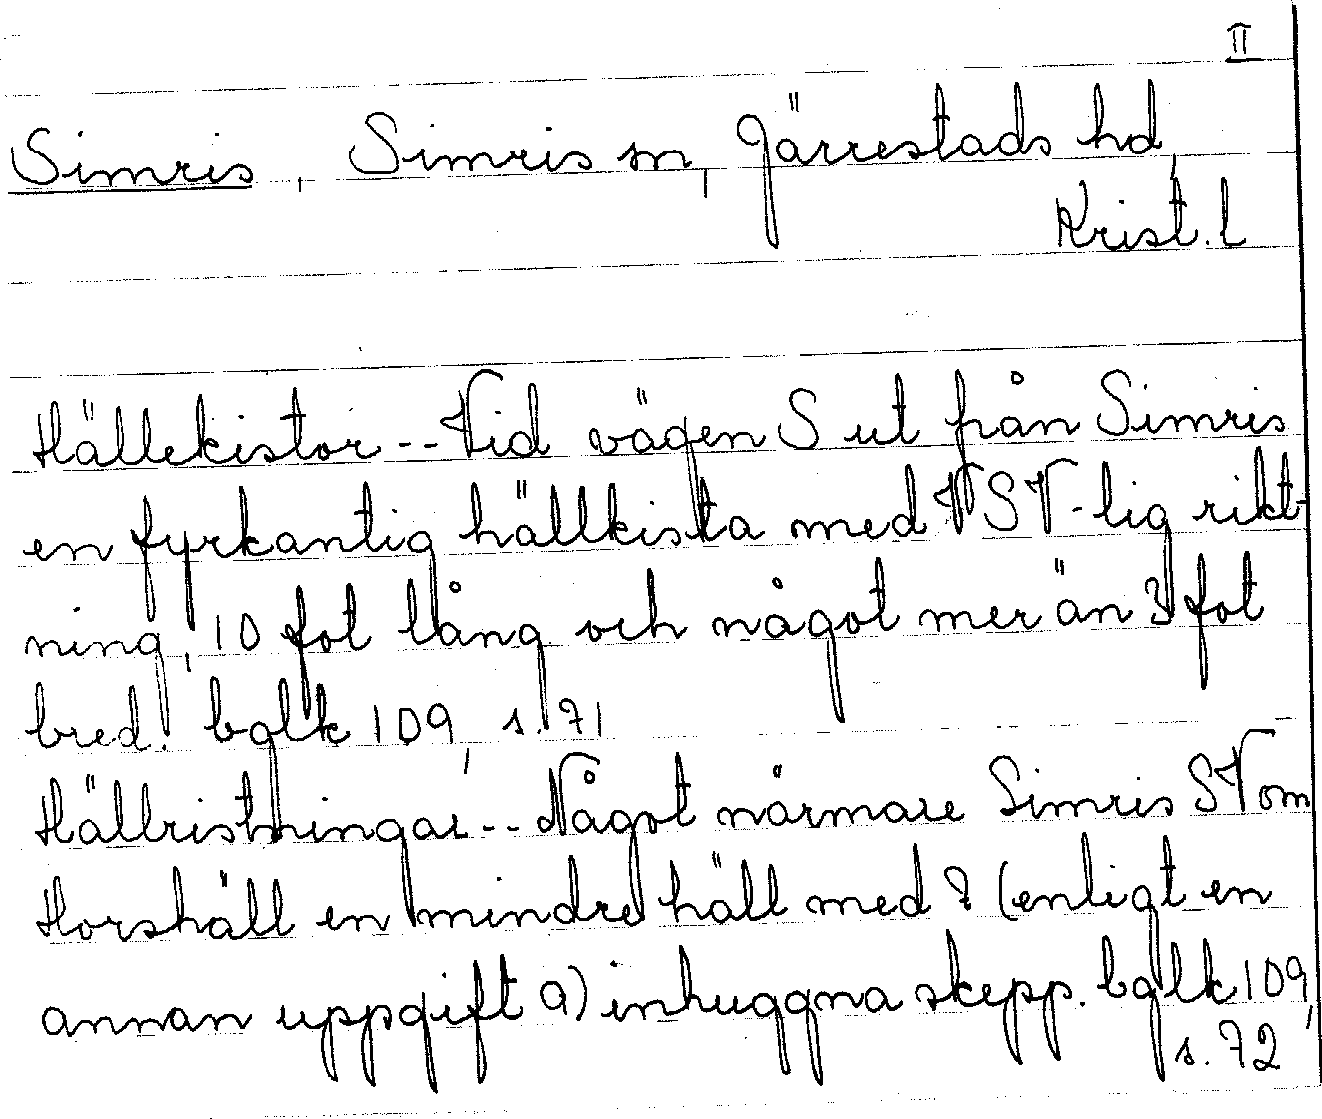 II
Simris, Simris sn, Järrestads hd,
Krist. l
Hällekistor -- Vid vägen S ut från Simris
en fyrkantig hällkista med VSV-lig rikt-
ning, 10 fot lång och något mer än 3 fot
bred. bglk 109, s. 71
Hällristningar -- Något närmare Simris SV om
Horshäll en mindre häll med 8 (enligt en
annan uppgift 9) inhuggna skepp. bglk 109,
s. 72